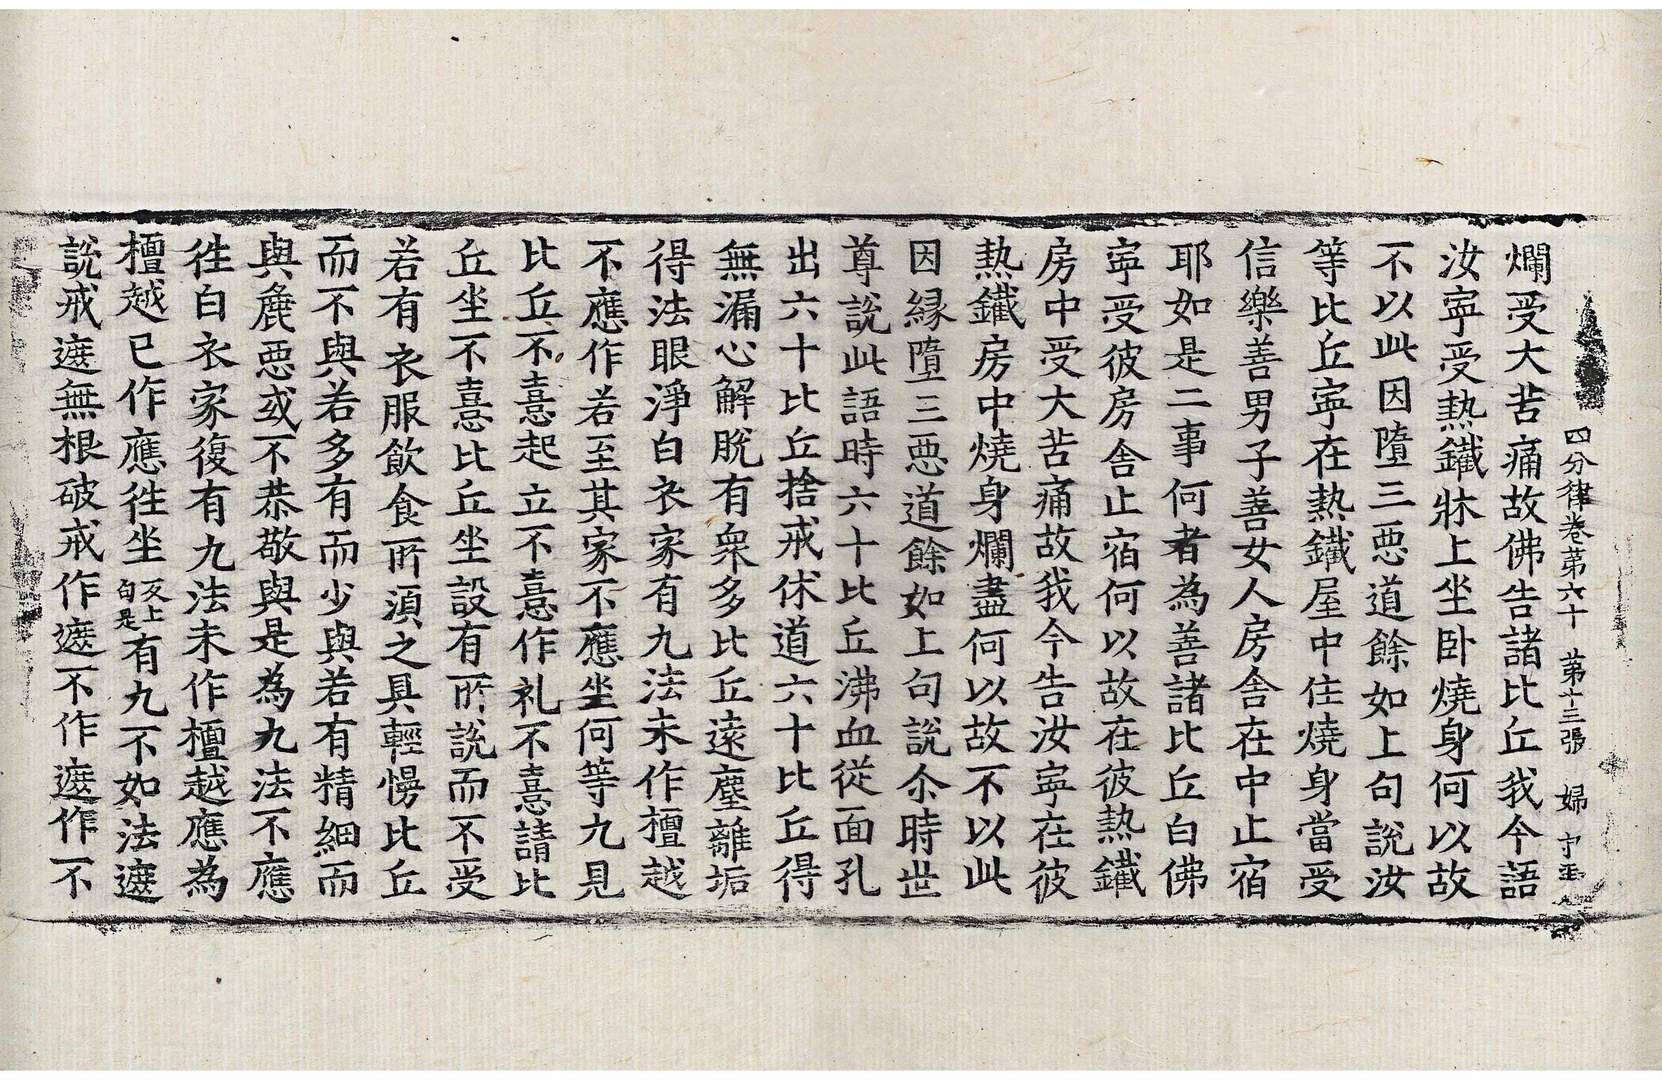 四分律卷苐六十　苐十三張　婦
爛受大苦痛故佛告諸比丘我今語
汝寜受熱鐵牀上坐卧燒身何以故
不以此因墮三惡道餘如上句說汝
等比丘寜在熱鐵屋中住燒身當受
信樂善男子善女人房舍在中止宿
耶如是二事何者為善諸比丘白佛
寜受彼房舍止宿何以故在彼熱鐵
房中受大苦痛故我今告汝寜在彼
熱鐵房中燒身爛盡何以故不以此
因縁墮三惡道餘如上句說尒時世
尊說此語時六十比丘沸血從面孔
出六十比丘捨戒休道六十比丘得
無漏心解脫有衆多比丘遠塵離垢
得法眼淨白衣家有九法未作檀越
不應作若至其家不應坐何等九見
比丘不憙起立不憙作礼不憙請比
丘坐不憙比丘坐設有所說而不受
若有衣服飲食所湏之具輕慢比丘
而不與若多有而少與若有精細而
與麁惡或不恭敬與是為九法不應
徃白衣家復有九法未作檀越應為
檀越已作應徃坐反上句是有九不如法遮
說戒遮無根破戒作遮不作遮作不